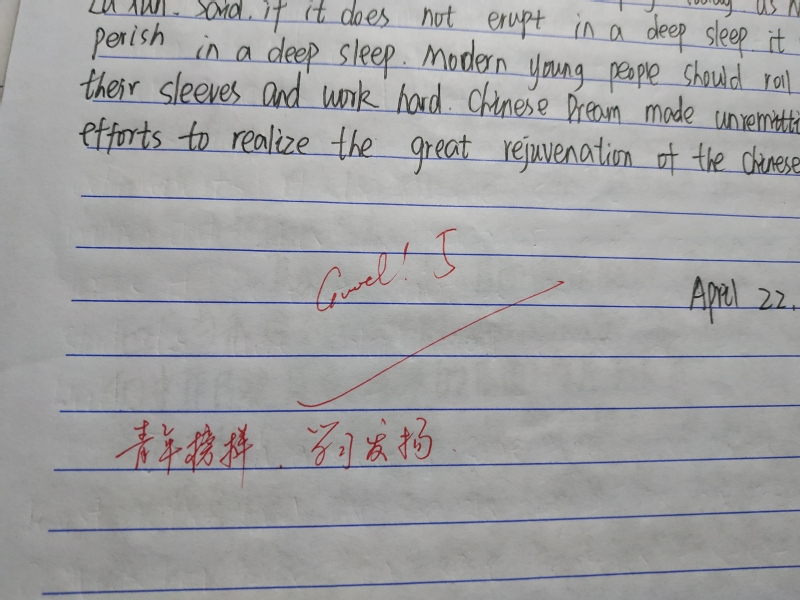 Lu Xun. Said. if it does not erupt in a deep sleep it
perish in a deep sleep. Modern young people should roll
their sleeves and work hard. Chinese Dream made unremitti
efforts to realize the great rejuvenation of the Chinese
Good! J
April 22.
青年榜样、学习发扬.